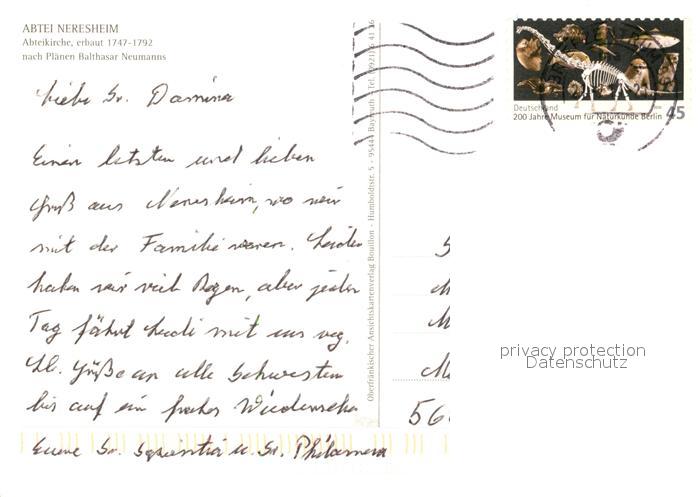 ABTEI NERESHEIM
Abteikirche, erbaut 1747-1792
nach Plänen Balthasar Neumanns
Liebe Sr. Damina
Einen letzten und lieben
Gruß aus Neresheim, wo wir
mit der Familie waren. Leider
haben wir viel Regen, aber jeden
Tag fährt Heidi mit uns weg.
Lb. Grüße an alle Schwestern
bis auf ein frohes Wiedersehn
Eure Sr. Sapientia u. Sr. Philomena
Oberfränkischer Ansichtskartenverlag Bouillon - Humboldtstr. 5 - 95444 Bayreuth
Deutschland
200 Jahre Museum für Naturkunde Berlin
45
56
privacy protection
Datenschutz